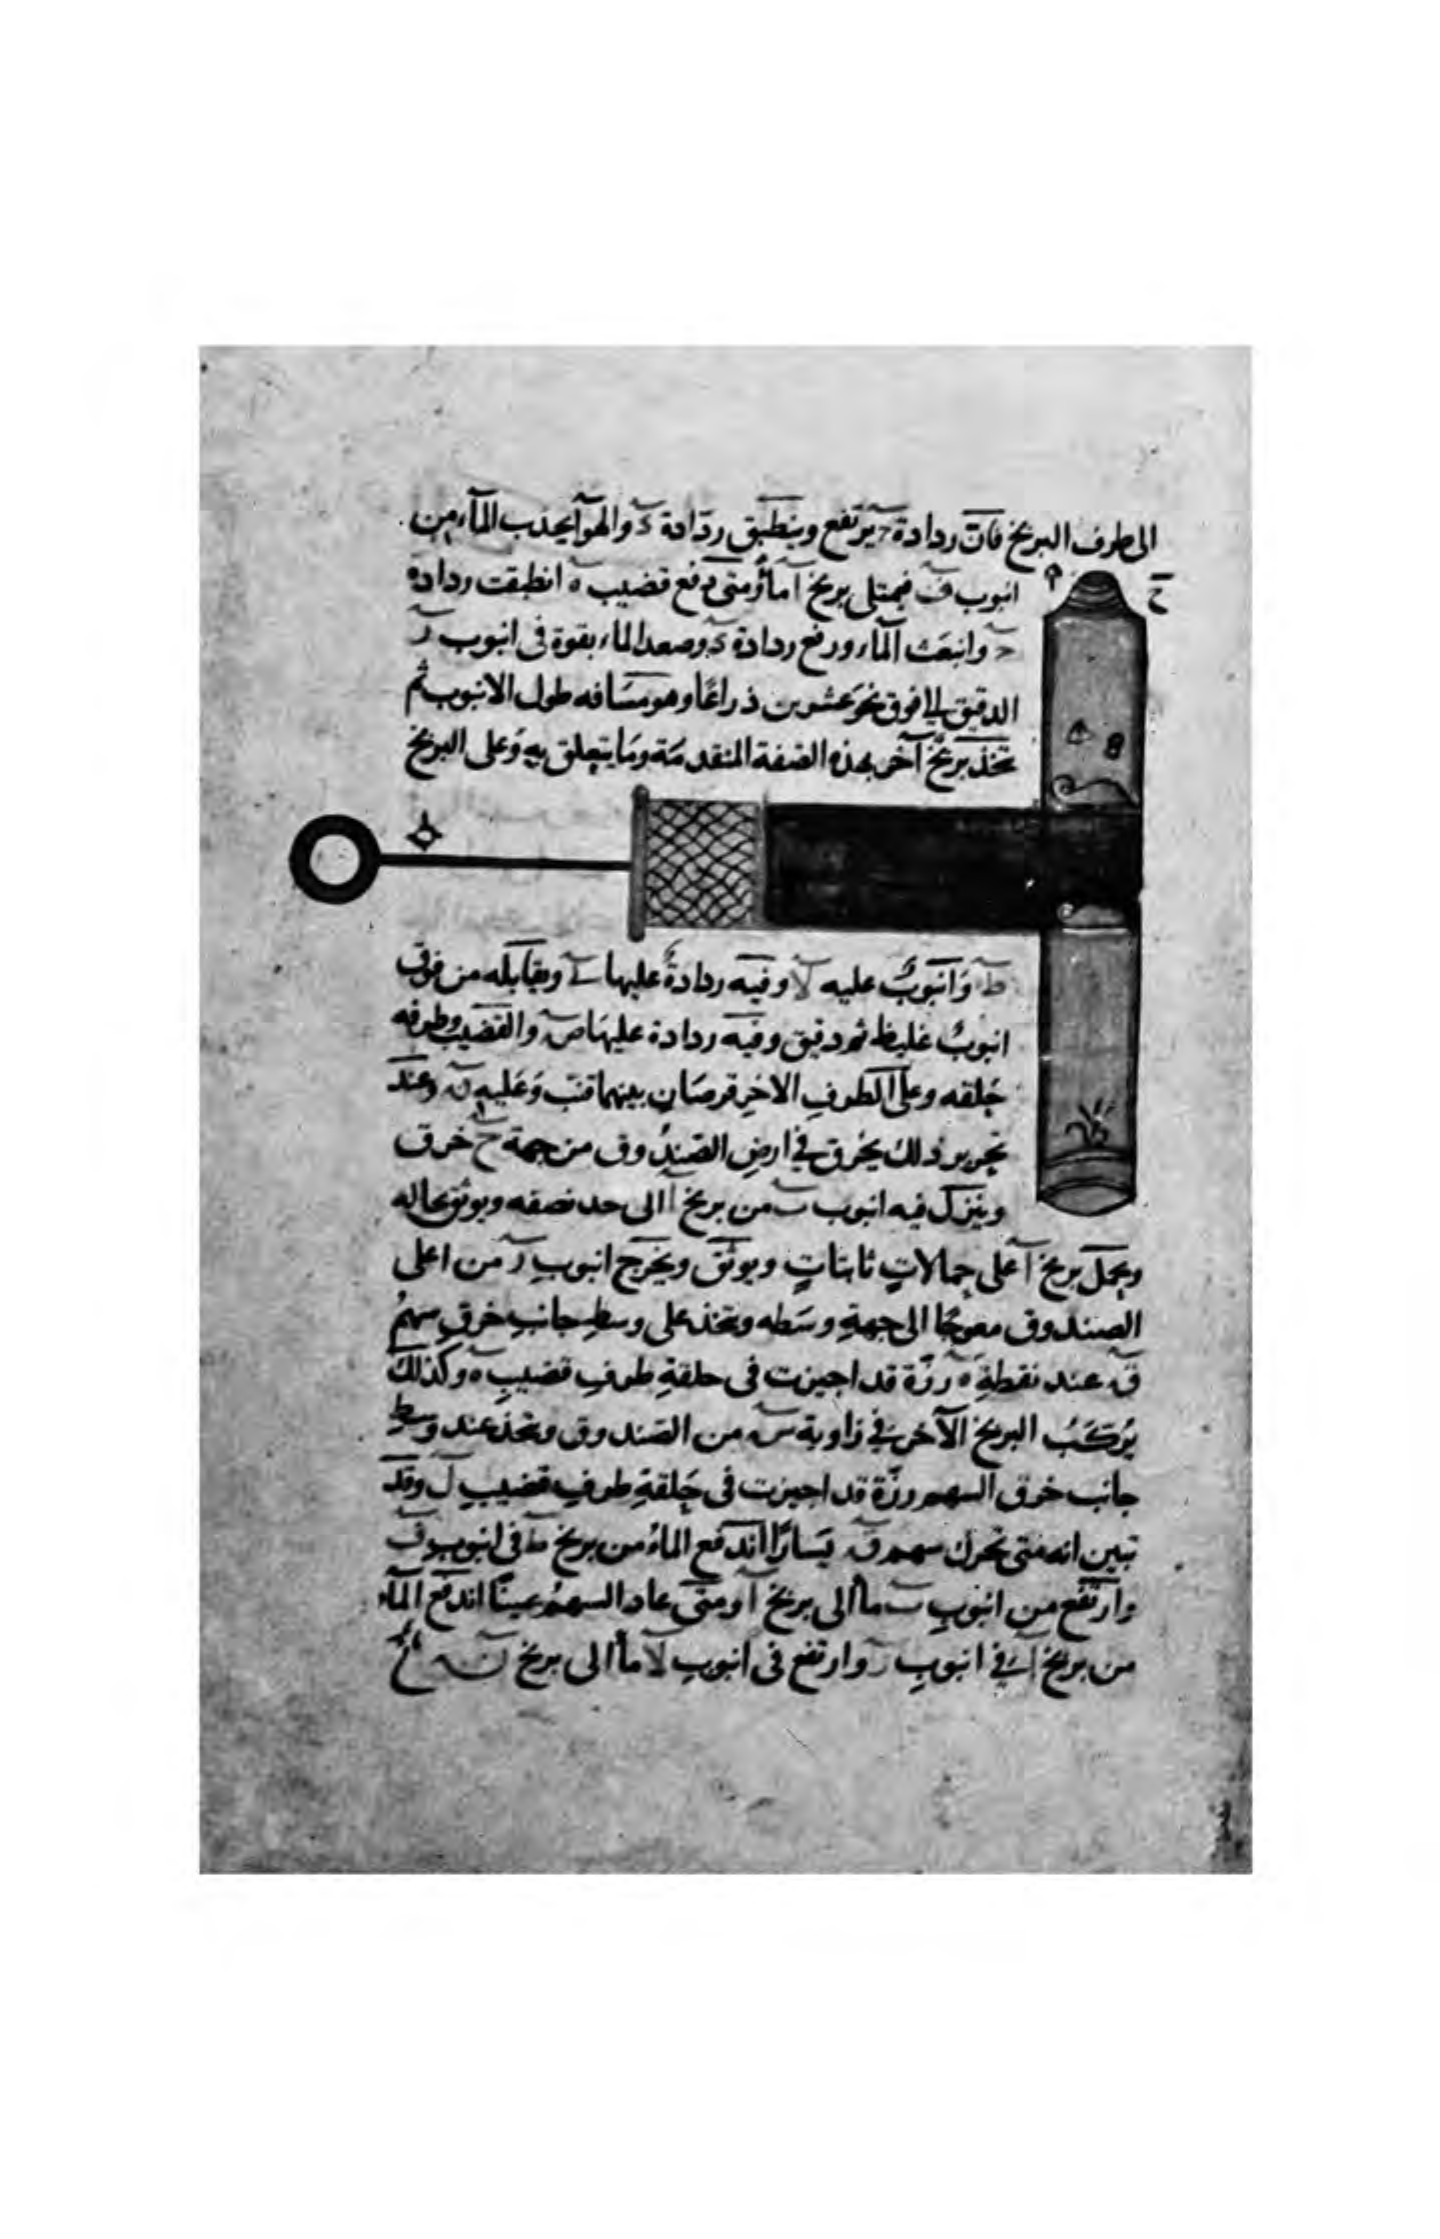 الى طرف البربخ فان ردادة ح يرتفع وينطبق ردادة ى والهوآ يجذب المآء من
انبوب ف فيمتلى بربخ آ مآءً ومتى دفع قضيب ه انطبقت ردادة
ح وانبعث المآء ورفع ردادة ى وصعد الماء بقوة فى انبوب ر
الدقيق الى فوق نحو عشرين ذراعًا وهو مسافه طول الانبوب ثم
تتخذ بربخ آخر بهذه الصفة المتقدمة وما يتعلق به وعلى البربخ
ط وانبوبٌ عليه لا وفيه ردادةٌ عليها ويقابله من فوق
انبوبٌ غليظ ثم دقيق وفيه ردادة عليها ص والقضيب وطرفه
حلقه وعلى الطرف الاخر قرصان بينهما قنب وعليه ن وعند
تحرير ذلك يخرق فى ارض الصندوق من جهة ح خرق
وينزل فيه انبوب ب من بربخ آ الى حد نصفه ويوثق بحاله
ويحمل بربخ آ على حمالاتٍ ثابتاتٍ ويوثق ويخرج انبوب ر من اعلى
الصندوق معوجًا الى جهة وسطه ويتخذ على وسط جانب خرق سهم
ق عند نقطة ه رزّة قد اجيزت فى حلقة طرف قضيب ه وكذلك
يركب البربخ الآخر فى زاوية س من الصندوق ويتخذ عند وسط
جانب خرق السهم رزّة قد اجيزت فى حلقة طرف قضيب ل وقد
تبين انه متى تحرك سهم ق يسارًا اندفع الماء من بربخ ط فى انبوب ف
وارتفع من انبوب ب مآ الى بربخ آ ومتى عاد السهم يمينًا اندفع المآء
من بربخ آ فى انبوب ر وارتفع فى انبوب لا مآ الى بربخ